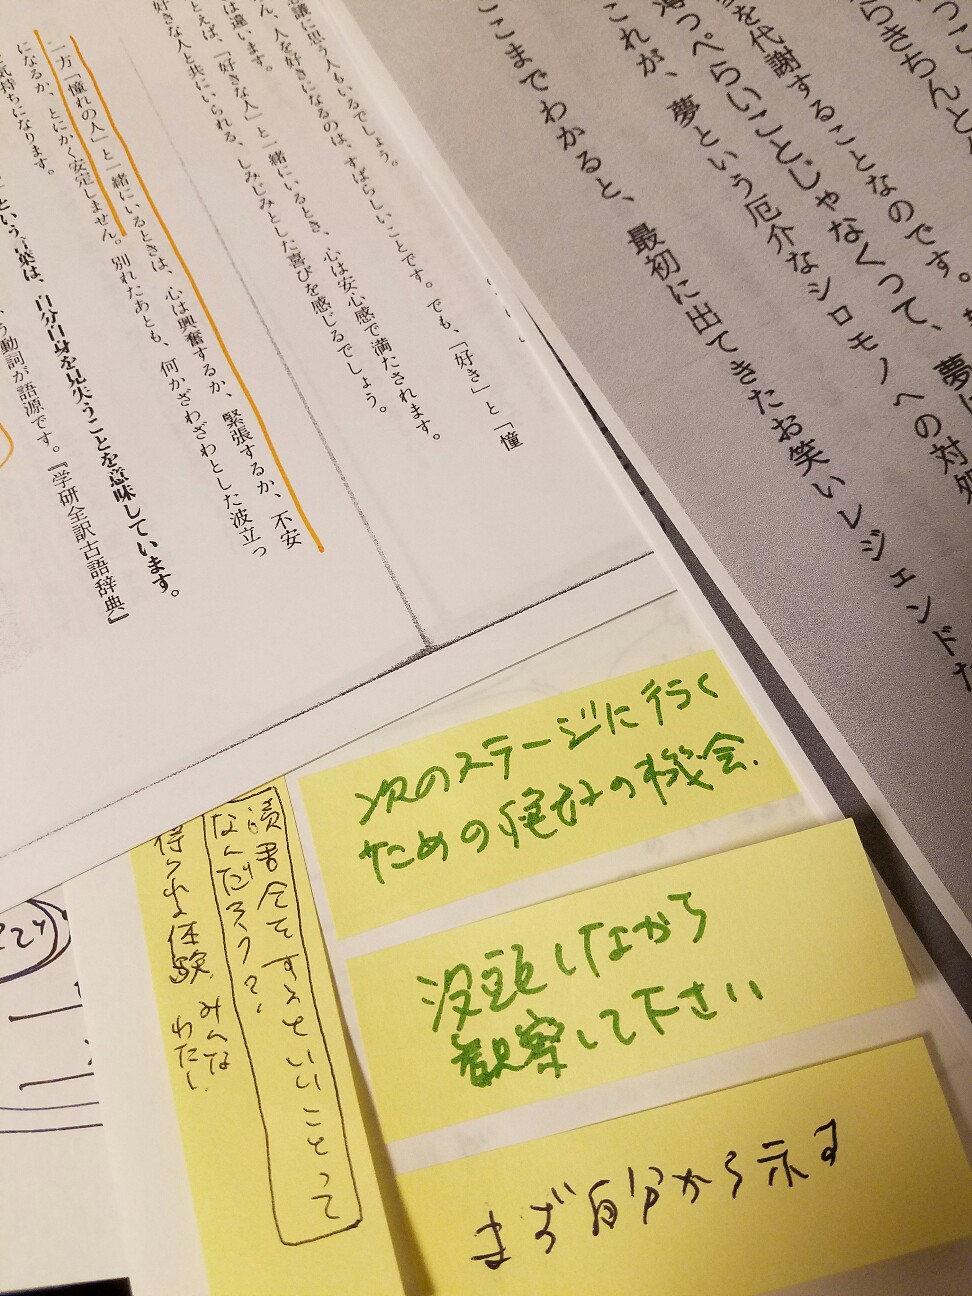 っこ
らきちんと
を代謝することなのです。
薄っぺらいことじゃなくって、夢
これが、夢という厄介なシロモノへの対処
ここまでわかると、最初に出てきたお笑いレジェンドた
議に思う人もいるでしょう。
ん、人を好きになるのは、すばらしいことです。でも、「好き」と「憧
は違います。
とえば、「好きな人」と一緒にいるとき、心は安心感で満たされます。
好きな人と共にいられる、しみじみとした喜びを感じるでしょう。
一方「憧れの人」と一緒にいるときは、心は興奮するか、緊張するか、不安
になるか、とにかく安定しません。別れたあとも、何かざわざわとした波立つ
気持ちになります。
という言葉は、自分自身を見失うことを意味しています。
う動詞が語源です。『学研全訳古語辞典』
次のステージに行く
ための健全の機会.
没頭しながら
観察して下さい
まず自分から示す
読書会をするといいことって
なんだろう?
得られる体験
みんな
わたし